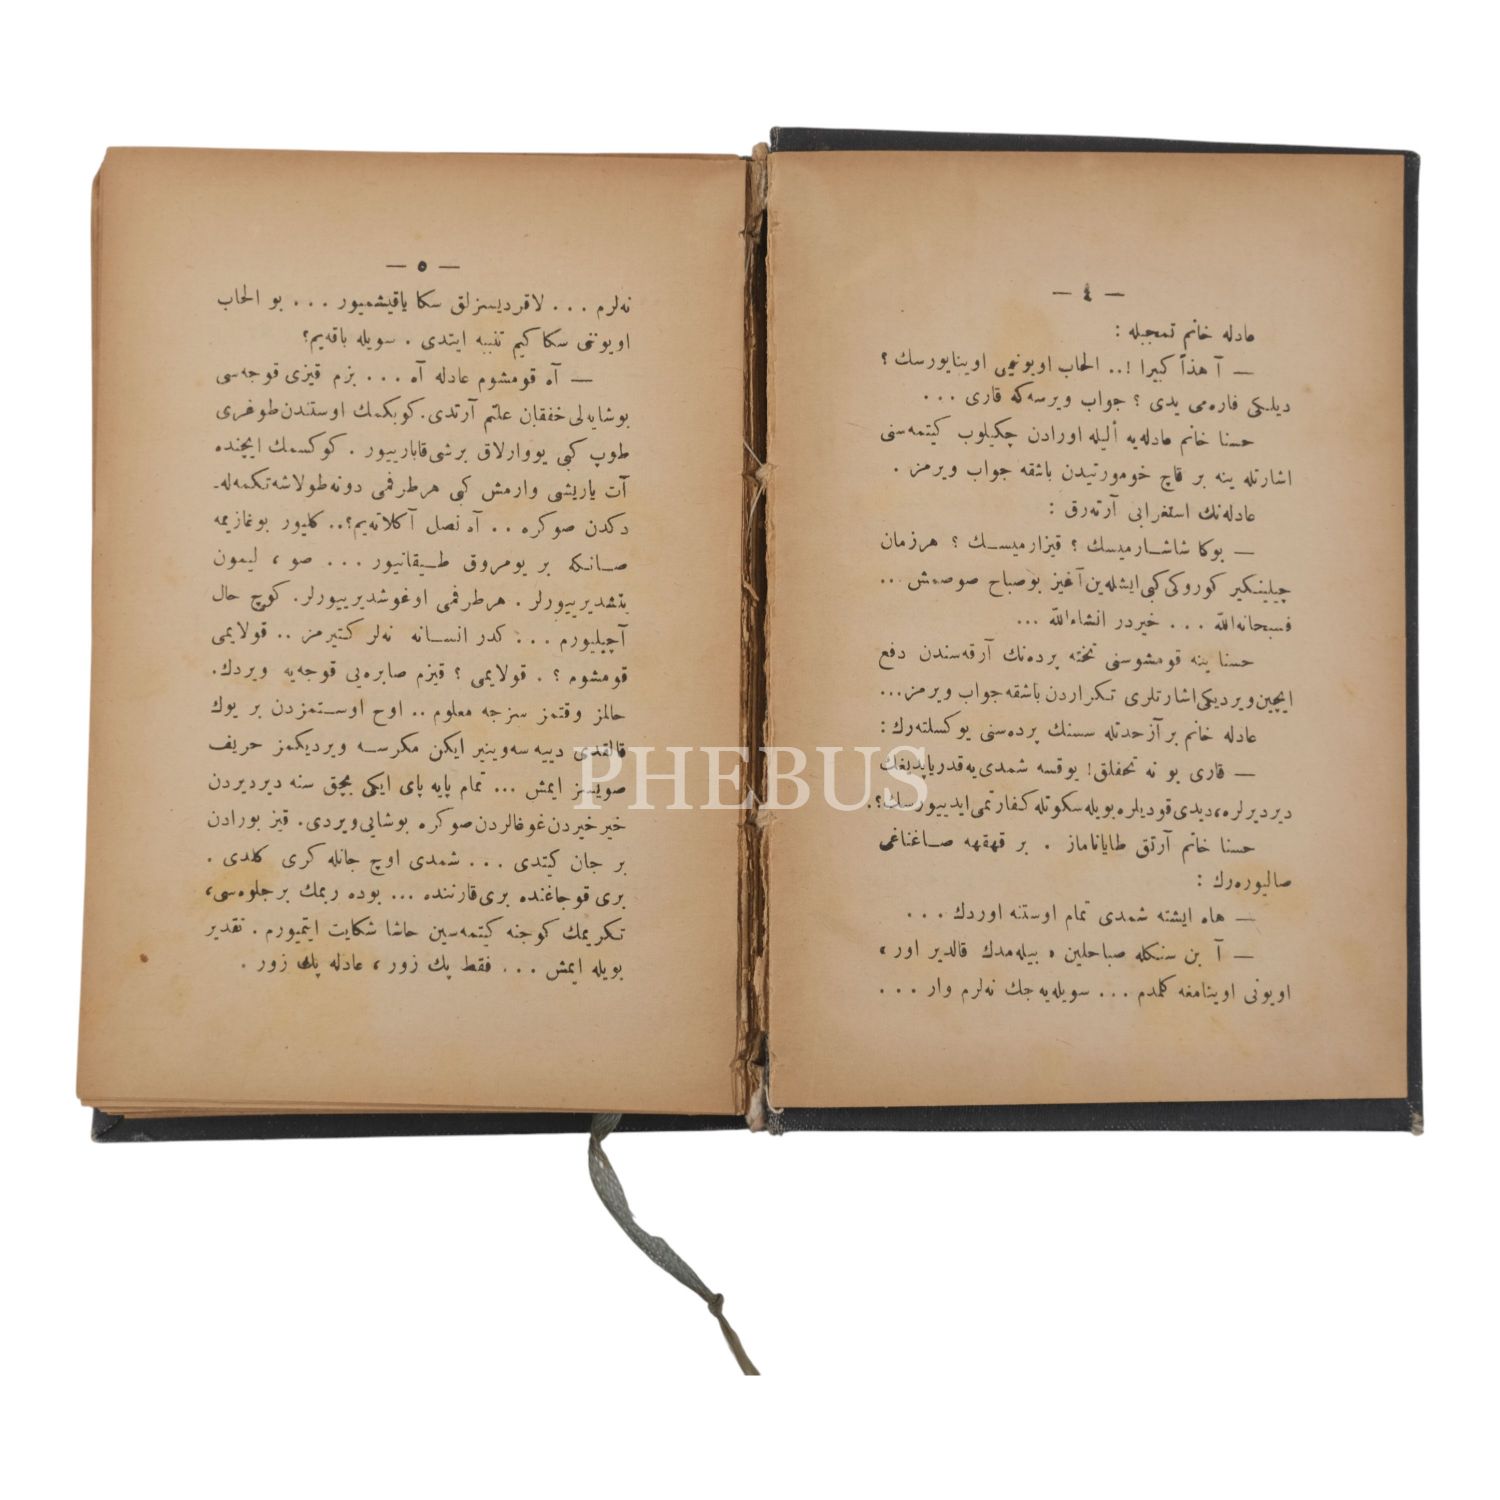 — ٤ —
عادله خانم تعجبله :
— آ هذاً كبيرا !.. الحاب اويونىمى اوينايورسك ؟
ديلكى فاره‌مى يدى ؟ جواب ويرسه‌كه قارى ...
حسنا خانم عادله‌يه أليله اورادن چكيلوب كيتمه‌سنى
اشارتله ينه بر قاچ خومورتيدن باشقه جواب ويرمز .
عادله‌نك استغرابى آرته‌رق :
— بوكا شاشارميسك ؟ قيزارميسك ؟ هرزمان
چيلينكير كوروكى كبى ايشله‌ين آغيز بوصباح صوصمش ...
فسبحانه‌الله ... خيردر انشاءالله ...
حسنا ينه قومشوسنى تخته پرده‌نك آرقه‌سندن دفع
ايچين ويرديكى اشارتلرى تكراردن باشقه جواب ويرمز...
عادله خانم بر آز حدتله سسنك پرده‌سنى يوكسلته‌رك :
— قارى بو نه تحفلق! يوقسه شمدى‌يه قدر ياپديغك
ديرديرلره، ديدى قوديلره بويله سكوتله كفارتمى ايدييورسك؟.
حسنا خانم آرتق طاياناماز . بر قهقهه صاغناغى
صاليوره‌رك :
— هاه ايشته شمدى تمام اوستنه اوردك ...
— آ بن سنكله صباحلين ه بيله‌مدك قالدير اور ،
اويونى اوينامغه كلمدم ... سويله‌يه جك نه‌لرم وار ...
— ٥ —
نه‌لرم ... لاقرديسزلق سكا ياقيشميور ... بو الحاب
اويوننى سكا كيم تنبيه ايتدى . سويله باقه‌يم؟
— آه قومشوم عادله آه ... بزم قيزى قوجه‌سى
بوشايه‌لى خفقان علتم آرتدى. كوبكمك اوستندن طوغرى
طوپ كبى يووارلاق برشى قابارييور . كوكسمك ايچنده
آت ياريشى وارمش كبى هر طرفمى دونه طولاشه تكمه‌له‌-
دكدن صوكره .. آه نصل آكلاته‌يم؟.. كليور بوغازيمه
صانكه بر يومروق طيقانيور ... صو ، ليمون
يتشديرييورلر . هر طرفمى اوغوشديرييورلر. كوچ حال
آچيليورم ... كدر انسانه نه‌لر كتيرمز .. قولايمى
قومشوم ؟ . قولايمى ؟ قيزم صابره‌يى قوجه‌يه ويردك.
حالمز وقتمز سزجه معلوم .. اوح اوستمزدن بر يوك
قالقدى دييه سه‌وينير ايكن مكرسه ويرديكمز حريف
صويسز ايمش ... تمام پايه پاى ايكى بچق سنه ديرديردن
خيرخيردن غوغالردن صوكره بوشايى ويردى. قيز بورادن
بر جان كيتدى ... شمدى اوچ جانله كرى كلدى .
برى قوجاغنده برى قارننده ... بوده ربمك بر جلوه‌سى،
تكريمك كوجنه كيتمه‌سين حاشا شكايت ايتميورم . تقدير
بويله ايمش ... فقط پك زور ، عادله پك زور .
PHEBUS